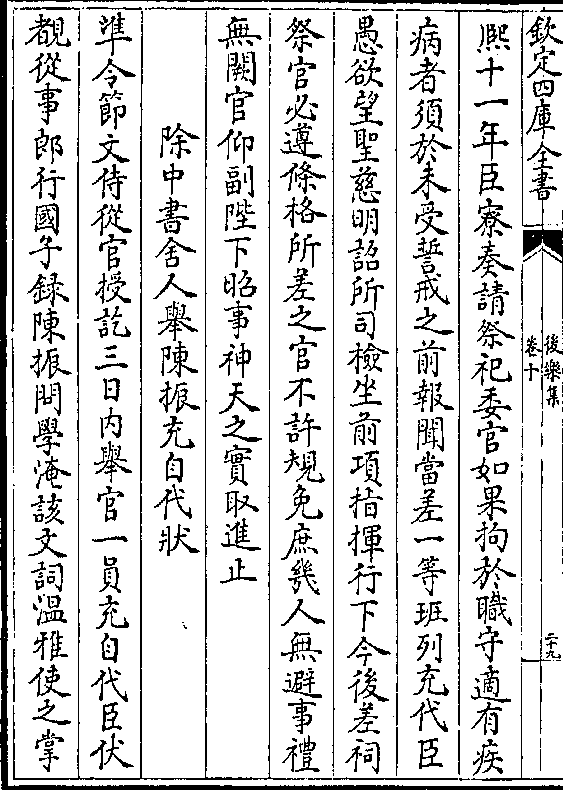 欽定四庫全書
後樂集
卷十
二十九
熈十一年臣寮奏請祭祀委官如果拘於職守適有疾
病者須於未受誓戒之前報聞當差一等班列充代臣
愚欲望聖慈明詔所司檢坐前項指揮行下今後差祠
祭官必遵條格所差之官不許規免庶幾人無避事禮
無闕官仰副陛下昭事神天之實取進止
除中書舍人舉陳振充自代狀
準令節文侍從官授訖三日内舉官一員充自代臣伏
覩從事郎行國子録陳振問學淹該文詞溫雅使之掌